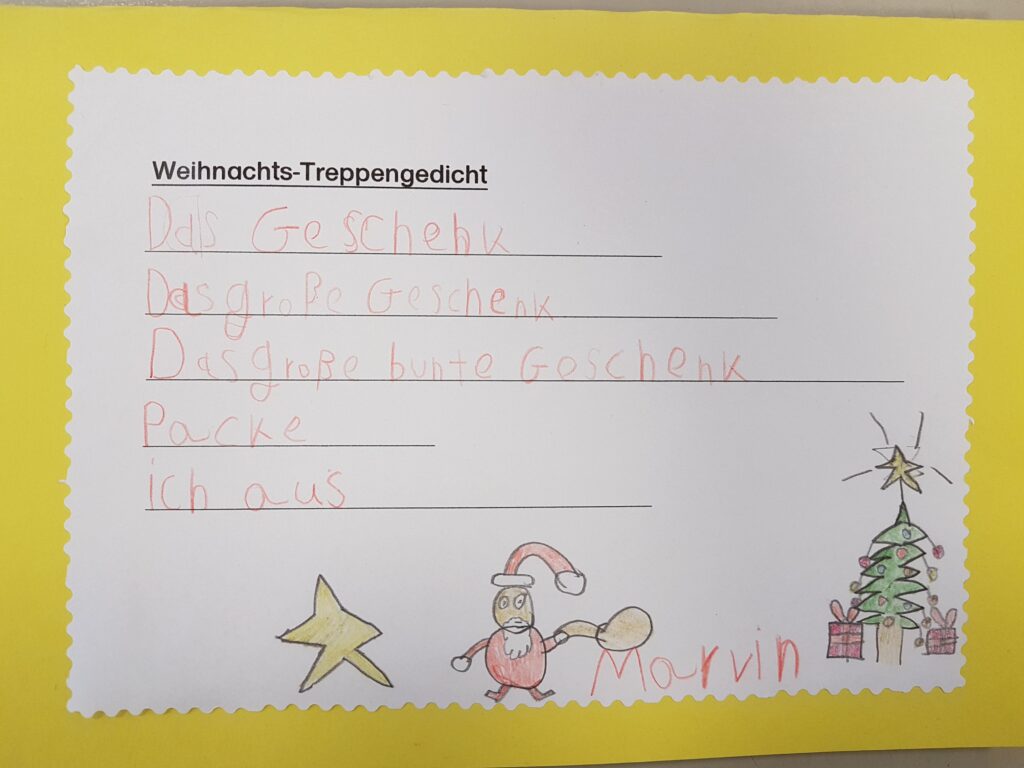 Weihnachts-Treppengedicht
Das Geschenk
Das große Geschenk
Das große bunte Geschenk
Packe
ich aus
Marvin